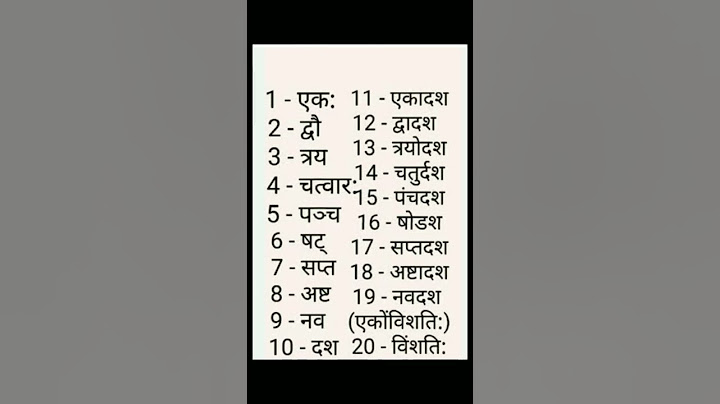 1 - एक:
2 - द्वौ
3 - त्रय
4 - चत्वार:
5 - पञ्च
6 - षट्
7 - सप्त
8 - अष्ट
9 - नव
10 - दश
11 - एकादश
12 - द्वादश
13 - त्रयोदश
14 - चतुर्दश
15 - पंचदश
16 - षोडश
17 - सप्तदश
18 - अष्टादश
19 - नवदश
(एकोंविशति:)
20 - विंशति: